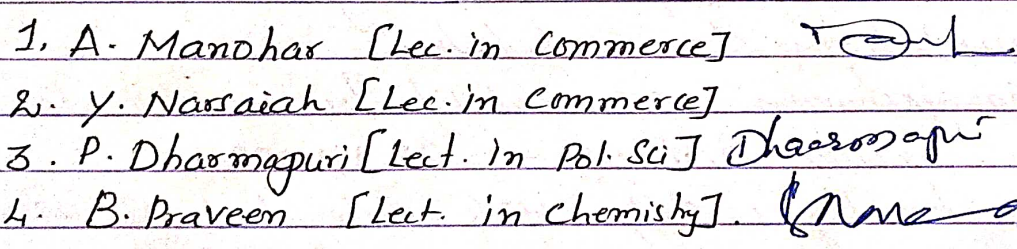 1. A. Manohar [Lec. in Commerce]
2. Y. Narsaiah [Lec. in Commerce]
3. P. Dharmapuri [Lect. in Pol. Sci] Dharmapuri
4. B. Praveen [Lect. in Chemistry].